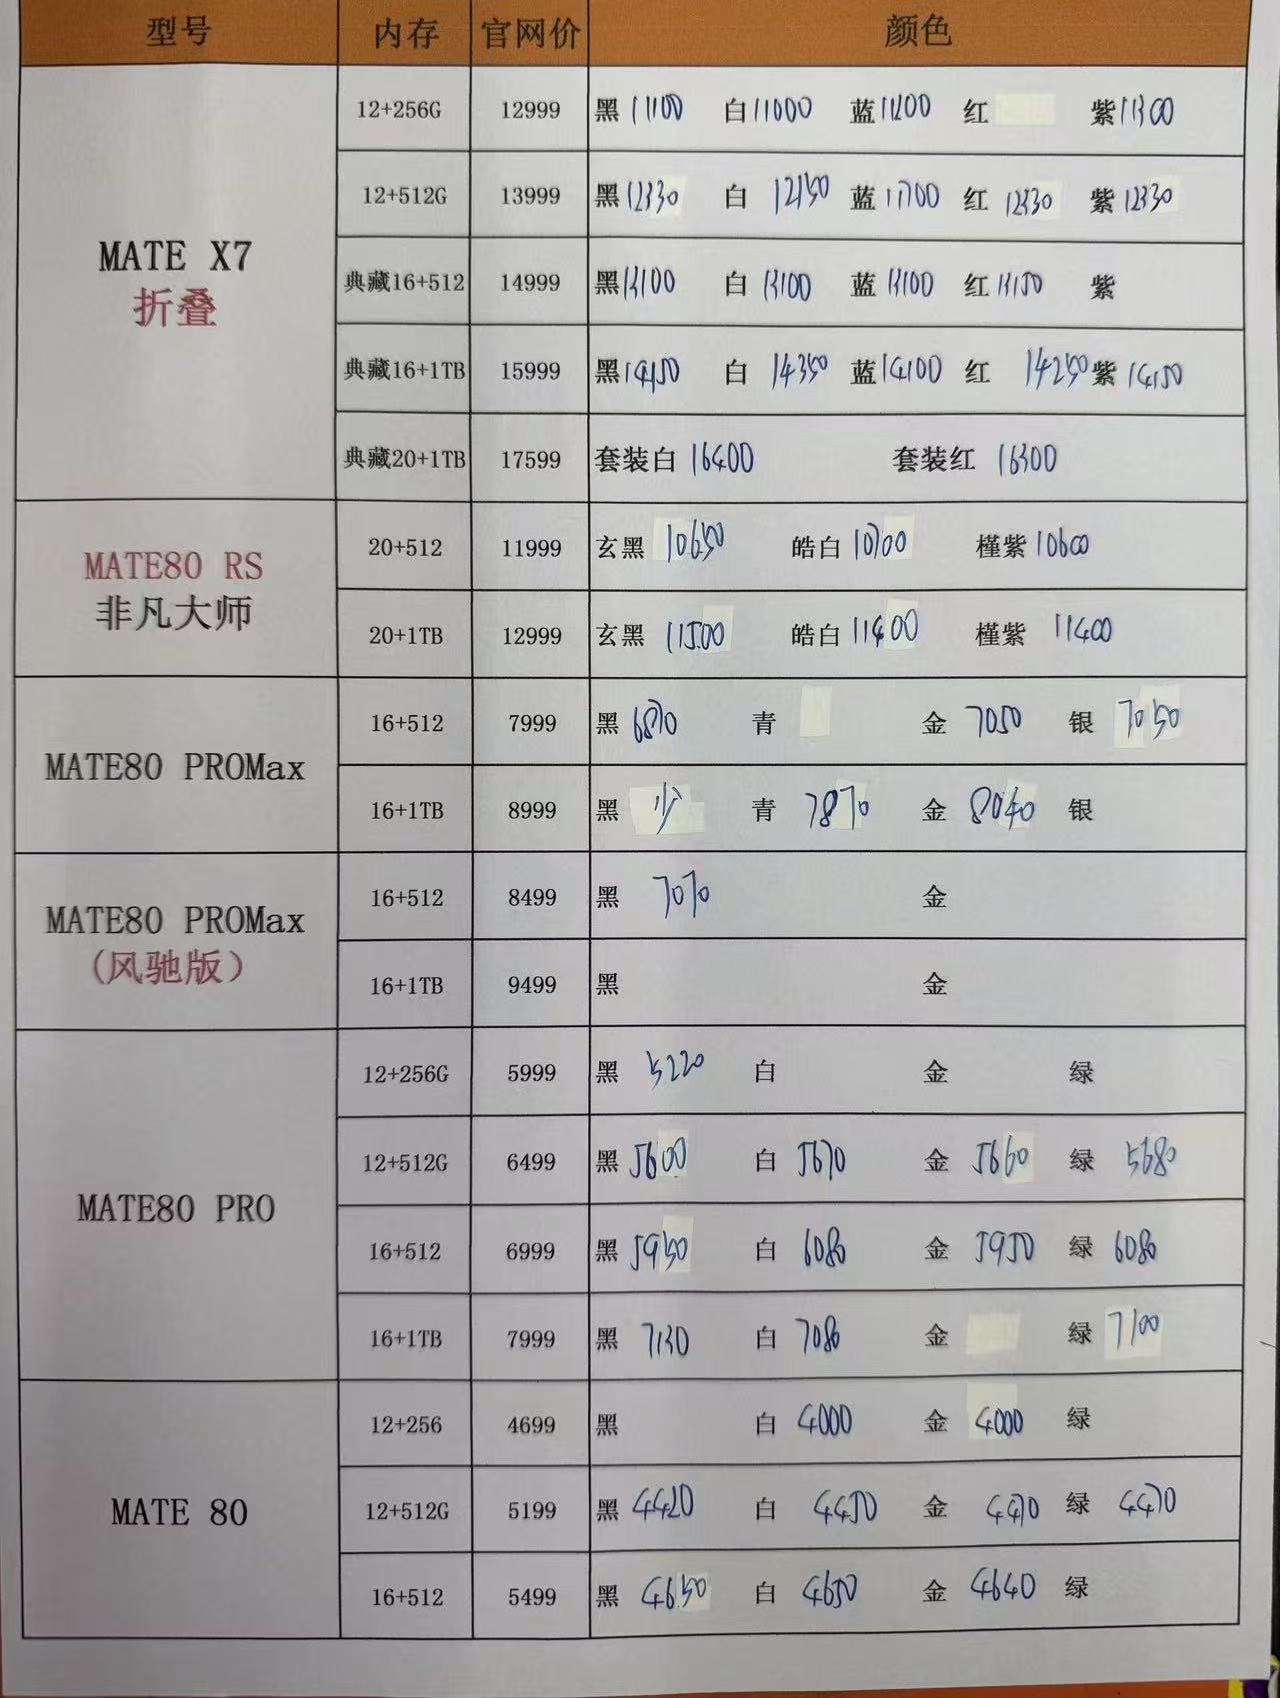 型号 内存 官网价 颜色
MATE X7
折叠
12+256G 12999 黑 11100 白 11000 蓝 11200 红 紫 11300
12+512G 13999 黑 12330 白 12150 蓝 11700 红 12330 紫 12330
典藏16+512 14999 黑 13100 白 13100 蓝 13100 红 13150 紫
典藏16+1TB 15999 黑 14150 白 14350 蓝 14100 红 14250 紫 14150
典藏20+1TB 17599 套装白 16400 套装红 16300
MATE80 RS
非凡大师
20+512 11999 玄黑 10650 皓白 10700 槿紫 10600
20+1TB 12999 玄黑 11500 皓白 11400 槿紫 11400
MATE80 PROMax
16+512 7999 黑 6870 青 金 7050 银 7050
16+1TB 8999 黑 少 青 7870 金 8040 银
MATE80 PROMax
(风驰版)
16+512 8499 黑 7070 金
16+1TB 9499 黑 金
MATE80 PRO
12+256G 5999 黑 5220 白 金 绿
12+512G 6499 黑 5600 白 5670 金 5660 绿 5680
16+512 6999 黑 5950 白 6080 金 5950 绿 6080
16+1TB 7999 黑 7130 白 7080 金 绿 7100
MATE 80
12+256 4699 黑 白 4000 金 4000 绿
12+512G 5199 黑 4420 白 4450 金 4470 绿 4470
16+512 5499 黑 4650 白 4650 金 4640 绿